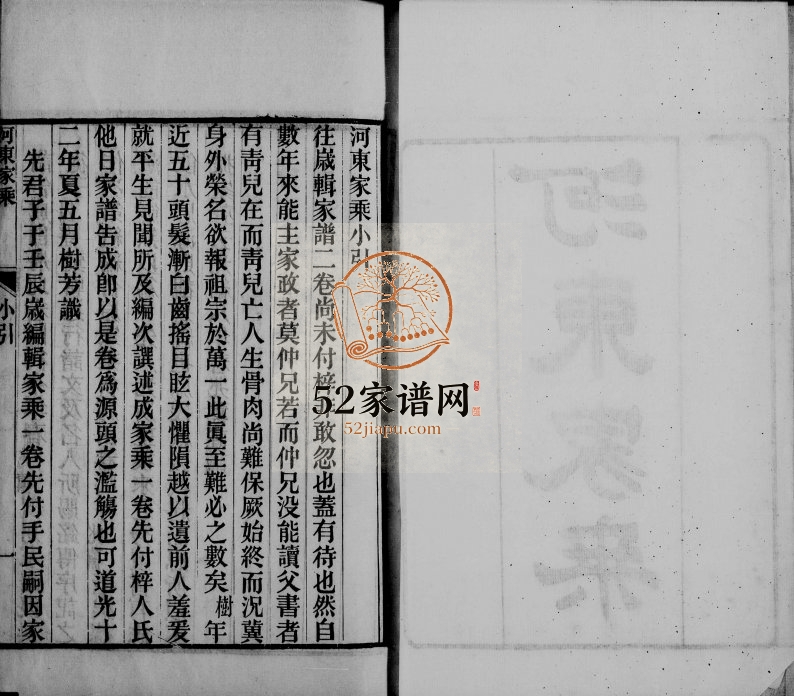 河東家乘
河東家乘小引
往歲輯家譜二卷尚未付梓敢忽也蓋有待也然自
數年來能主家政者莫仲兄若而仲兄没能讀父書者
有靑兒在而靑兒亡人生骨肉尚難保厥始終而況冀
身外榮名欲報祖宗於萬一此眞至難必之數矣樹年
近五十頭髮漸白齒搖目眩大懼隕越以遺前人羞爰
就平生見聞所及編次譔述成家乘一卷先付梓人氏
他日家譜告成卽以是卷爲源頭之濫觴也可道光十
二年夏五月樹芳識
先君子于壬辰歲編輯家乘一卷先付手民嗣因家
河東家乘 小引 一
52家谱网
52jiapu.com